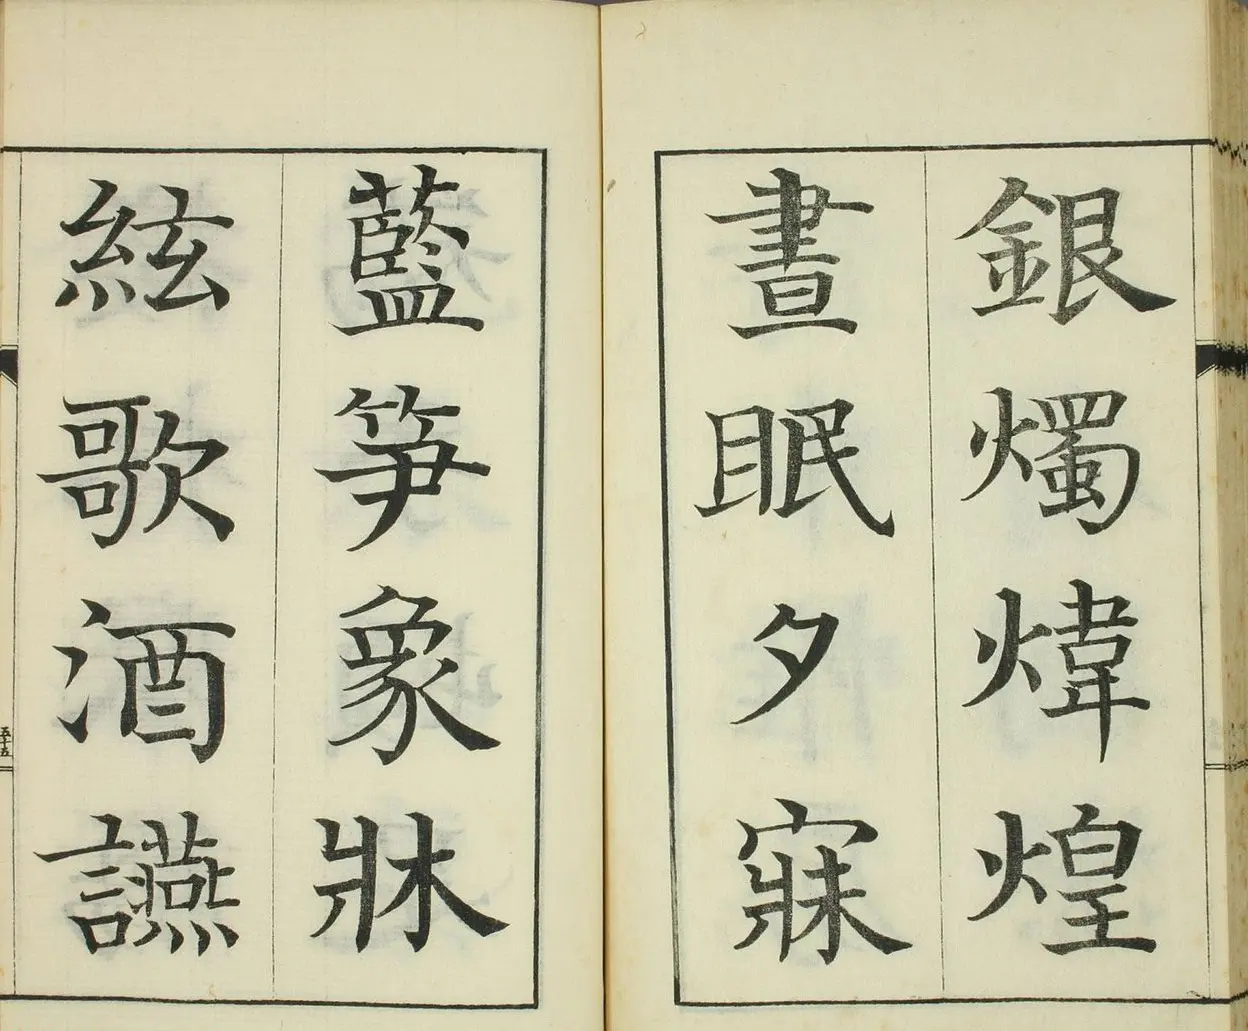 銀燭煒煌
晝眠夕寐
藍笋象牀
絃歌酒讌
五十五